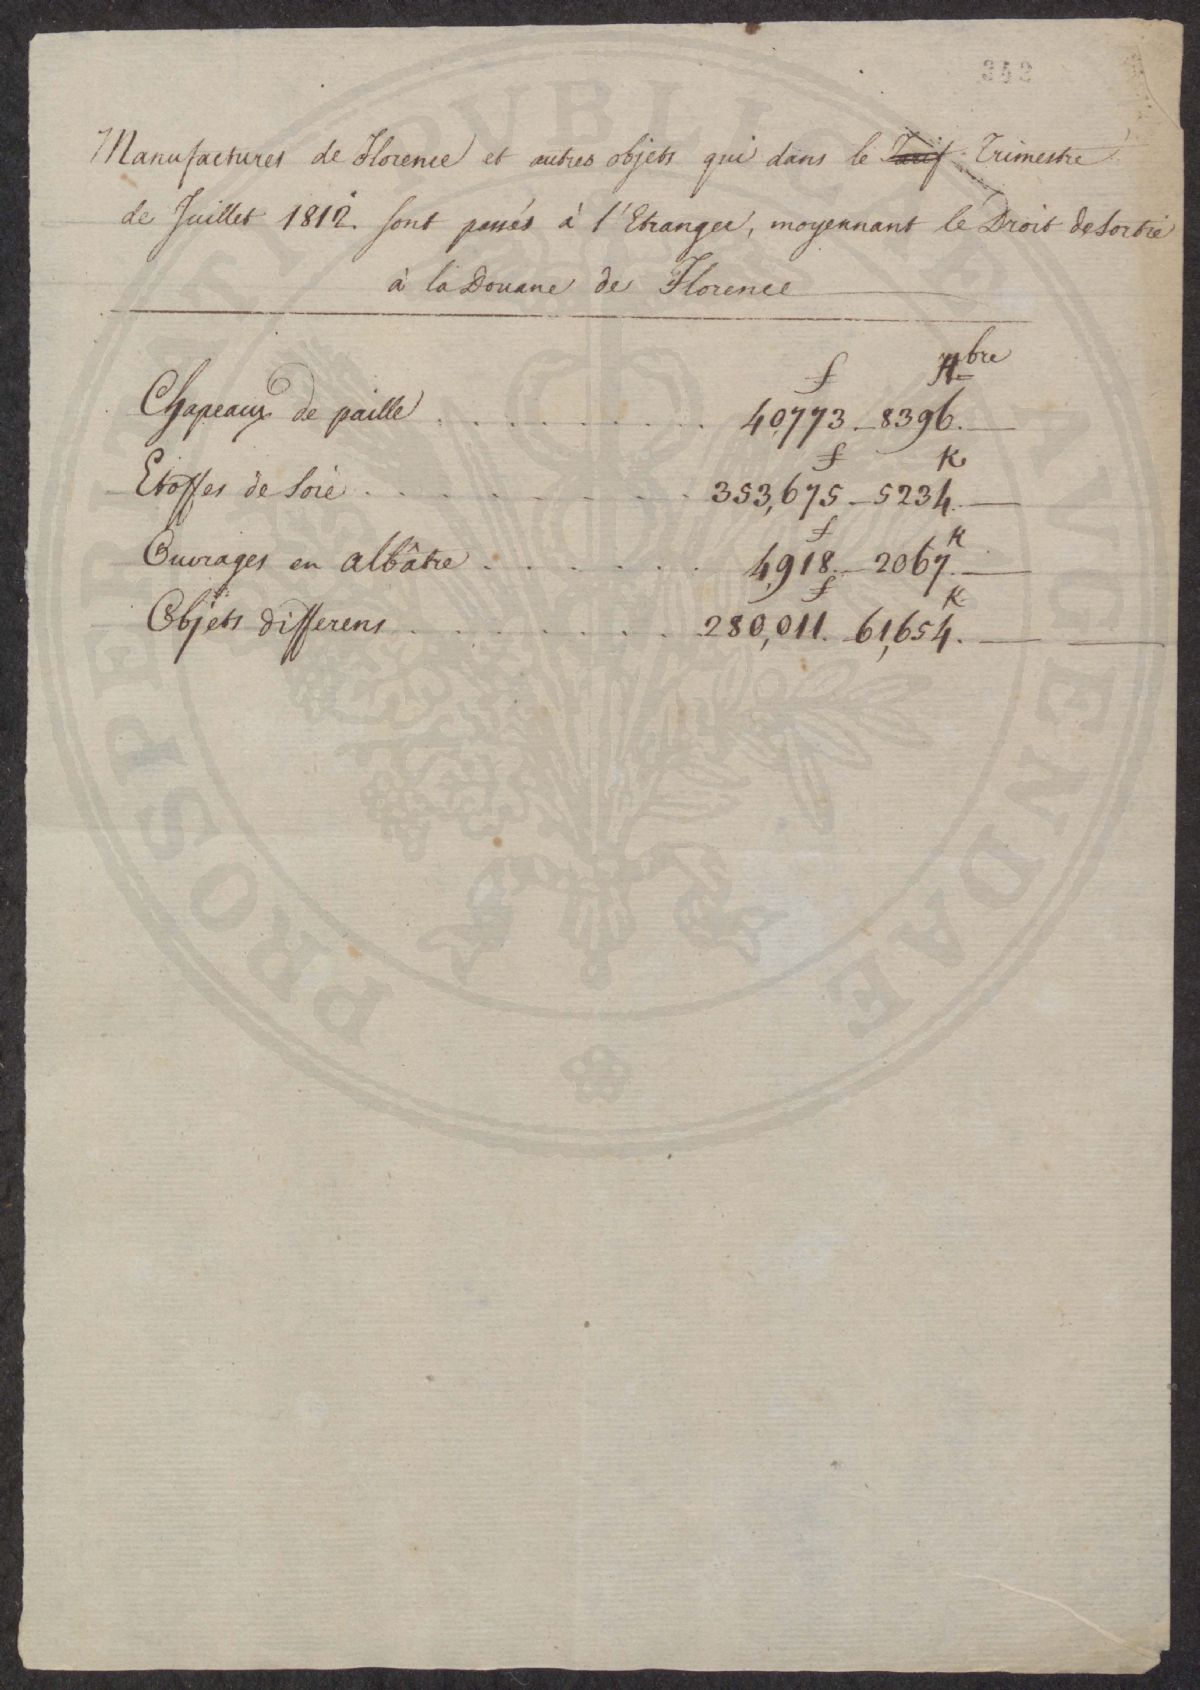 342
Manufactures de Florence et autres objets qui dans le Tarif Trimestre
de Juillet 1812. sont passés à l'Etranger, moyennant le Droit de Sortie
à la Douane de Florence
f Nbre
Chapeaux de paille . . . . . . . . . . 40,773 - 8396.
f K
Etoffes de Soie . . . . . . . . . . 353,675 - 5234.
f K
Ouvrages en albâtre . . . . . . . 4,918. - 2067.
f K
Objets differens . . . . . . . . . 280,011. 61,654.
PROSPERITATI PUBLICAE AUGENDAE